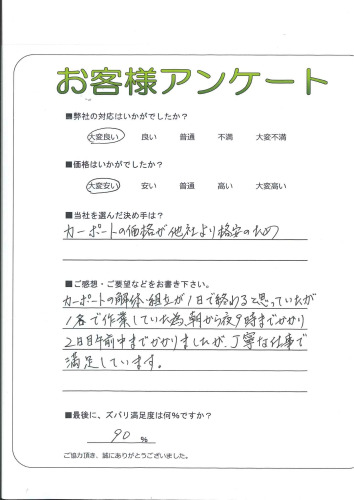 お客様アンケート
■弊社の対応はいかがでしたか？
大変良い 良い 普通 不満 大変不満
■価格はいかがでしたか？
大変安い 安い 普通 高い 大変高い
■当社を選んだ決め手は？
カーポートの価格が他社より格安のため
■ご感想・ご要望などをお書き下さい。
カーポートの解体・組立が1日で終わると思っていたが
1名で作業していた為、朝から夜9時までかかり
2日目午前中までかかりましたが、丁寧な仕事で
満足しています。
■最後に、ズバリ満足度は何%ですか？
90 %
ご協力頂き、誠にありがとうございました。